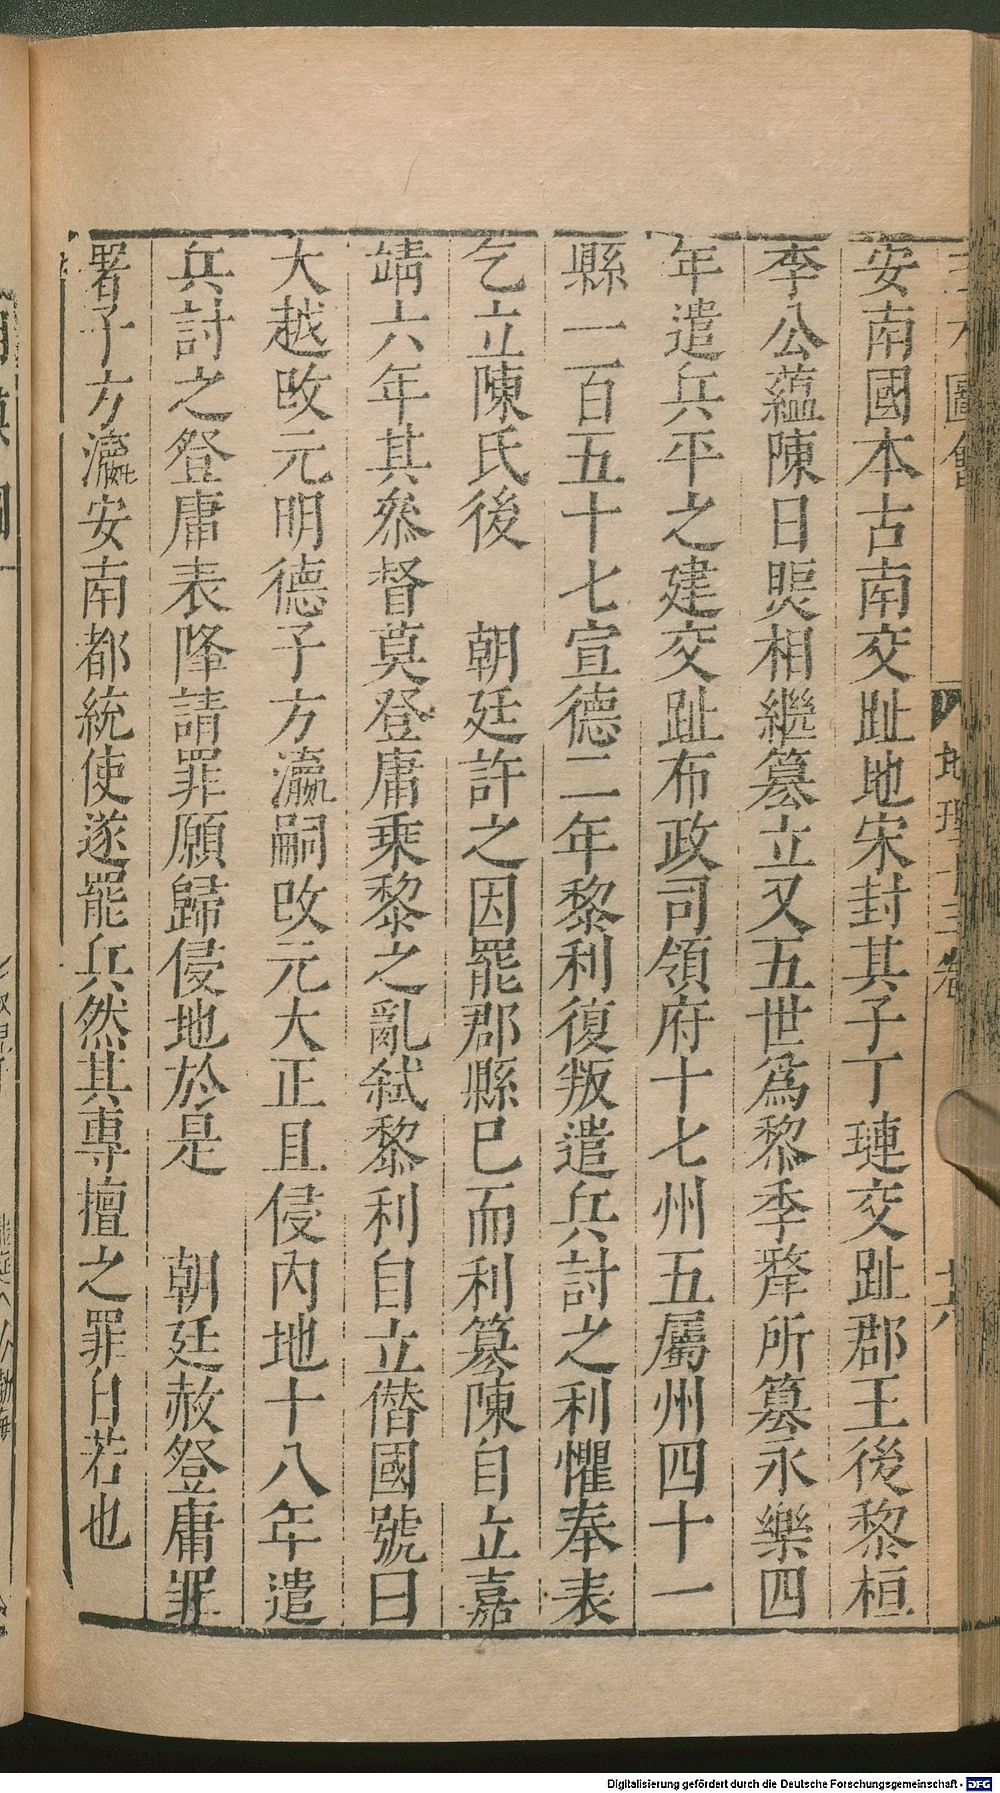 三才圖會 地理十三卷 十六
安南國本古南交趾地宋封其子丁璉交趾郡王後黎桓
李公蘊陳日煚相繼篡立又五世為黎季犛所篡永樂四
年遣兵平之建交趾布政司領府十七州五屬州四十一
縣一百五十七宣德二年黎利復叛遣兵討之利懼奉表
乞立陳氏後　朝廷許之因罷郡縣巳而利篡陳自立嘉
靖六年其叅督莫登庸乘黎之亂弒黎利自立僭國號曰
大越改元明德子方瀛嗣改元大正且侵內地十八年遣
兵討之登庸表降請罪願歸侵地於是　朝廷赦登庸罪
署子方瀛安南都統使遂罷兵然其專擅之罪自若也
Digitalisierung gefördert durch die Deutsche Forschungsgemeinschaft - DFG